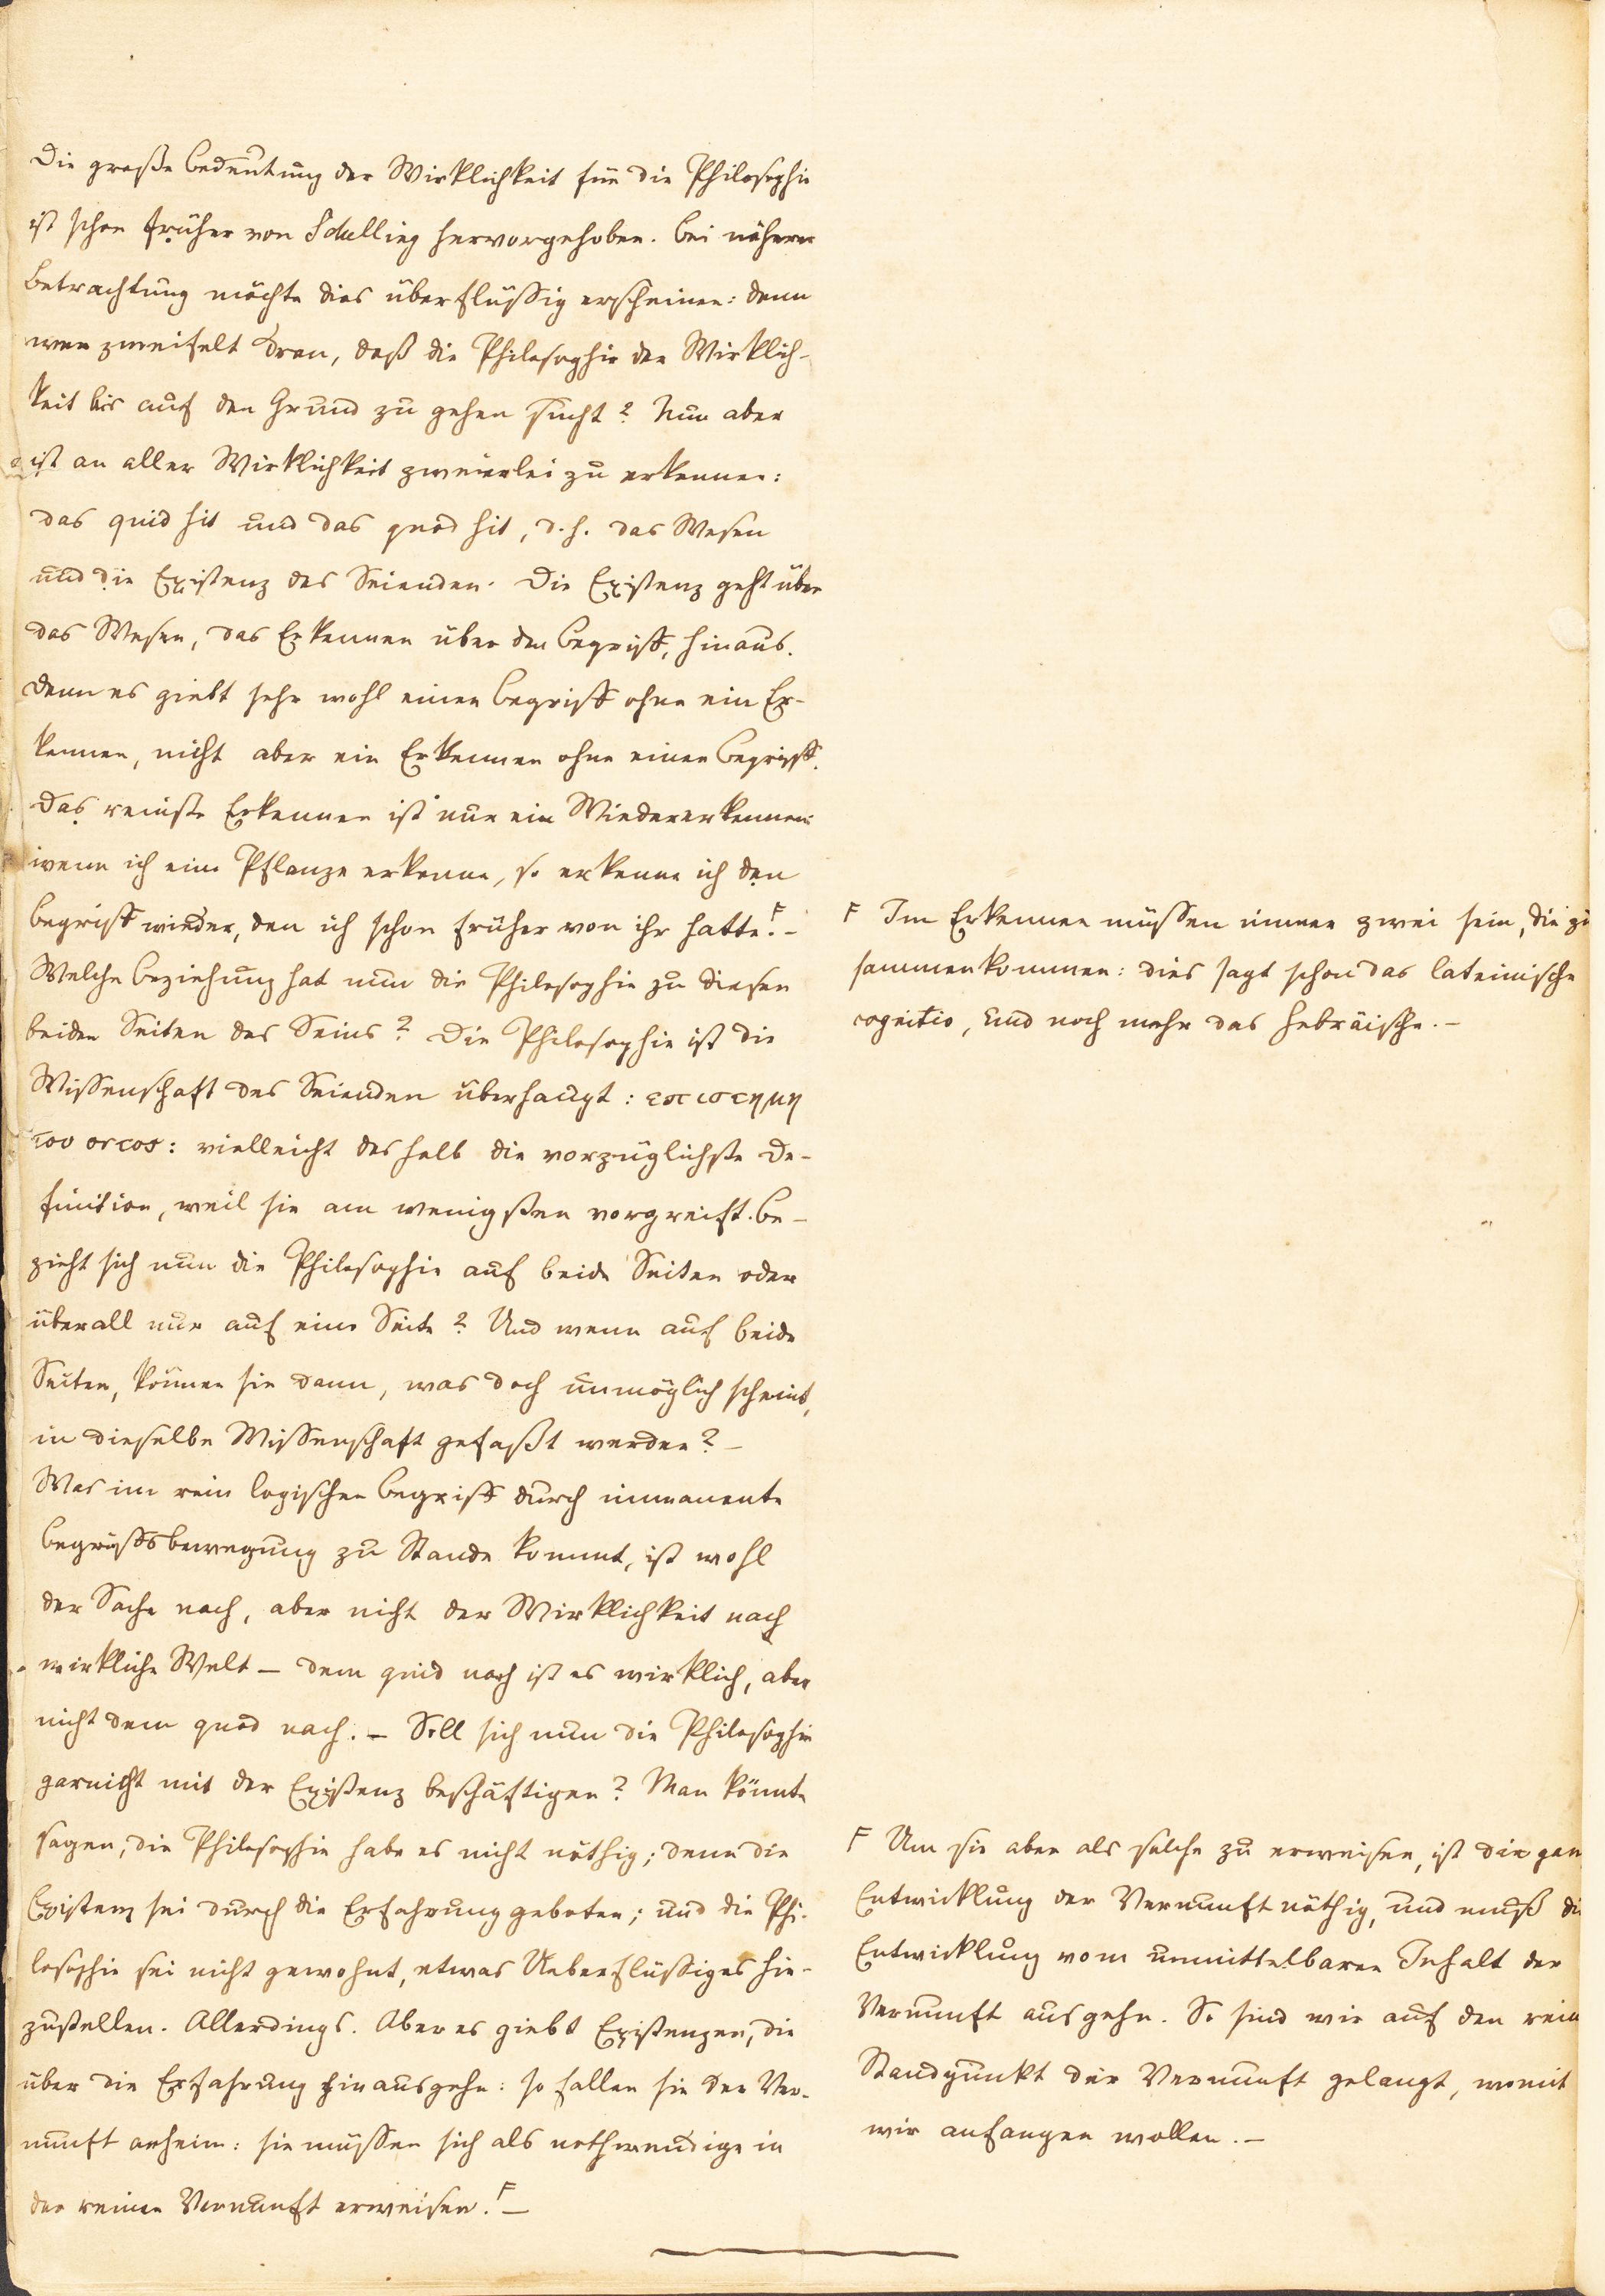 Die große Bedeutung der Wirklichkeit für die Philosophie
ist schon früher von Schelling hervorgehoben. Bei näherer
Betrachtung möchte dies überflüßig erscheinen: denn
wer zweifelt dran, daß die Philosophie der Wirklich-
keit bis auf den Grund zu gehen sucht? Nun aber
ist an aller Wirklichkeit zweierlei zu erkennen:
das quid sit und das quod sit, d. h. das Wesen
und die Existenz des Seienden. Die Existenz geht über
das Wesen, das Erkennen über den Begriff, hinaus.
Denn es giebt sehr wohl einen Begriff ohne ein Er-
kennen, nicht aber ein Erkennen ohne einen Begriff.
Das reinste Erkennen ist nur ein Wiedererkennen:
wenn ich eine Pflanze erkenne, so erkenne ich den
Begriff wieder, den ich schon früher von ihr hatte. F –
Welche Beziehung hat nun die Philosophie zu diesen
beiden Seiten des Seins? Die Philosophie ist die
Wissenschaft des Seienden überhaupt: επιστημη
του οντος: vielleicht deshalb die vorzüglichste De-
finition, weil sie am wenigsten vorgreift. Be-
zieht sich nun die Philosophie auf beide Seiten oder
überall nur auf eine Seite? Und wenn auf beide
Seiten, können sie dann, was doch unmöglich scheint,
in dieselbe Wissenschaft gefaßt werden? –
Was im rein logischen Begriff durch immanente
Begriffsbewegung zu Stande kommt, ist wohl
der Sache nach, aber nicht der Wirklichkeit nach
wirkliche Welt – dem quid nach ist es wirklich, aber
nicht dem quod nach. – Soll sich nun die Philosophie
garnicht mit der Existenz beschäftigen? Man könnte
sagen, die Philosophie habe es nicht nöthig; denn die
Existenz sei durch die Erfahrung geboten; und die Phi-
losophie sei nicht gewohnt, etwas Ueberflüßiges hin-
zustellen. Allerdings. Aber es giebt Existenzen, die
über die Erfahrung hinausgehn: so fallen sie der Ver-
nunft anheim: sie müssen sich als nothwendige in
der reinen Vernunft erweisen. F –
F Im Erkennen müssen immer zwei sein, die zu
sammenkommen: dies sagt schon das lateinische
cognitio, und noch mehr das hebräische. –
F Um sie aber als solche zu erweisen, ist die gan
Entwicklung der Vernunft nöthig, und muß di
Entwicklung vom unmittelbaren Inhalt der
Vernunft ausgehn. So sind wir auf den rein
Standpunkt der Vernunft gelangt, womit
wir anfangen wollen. –